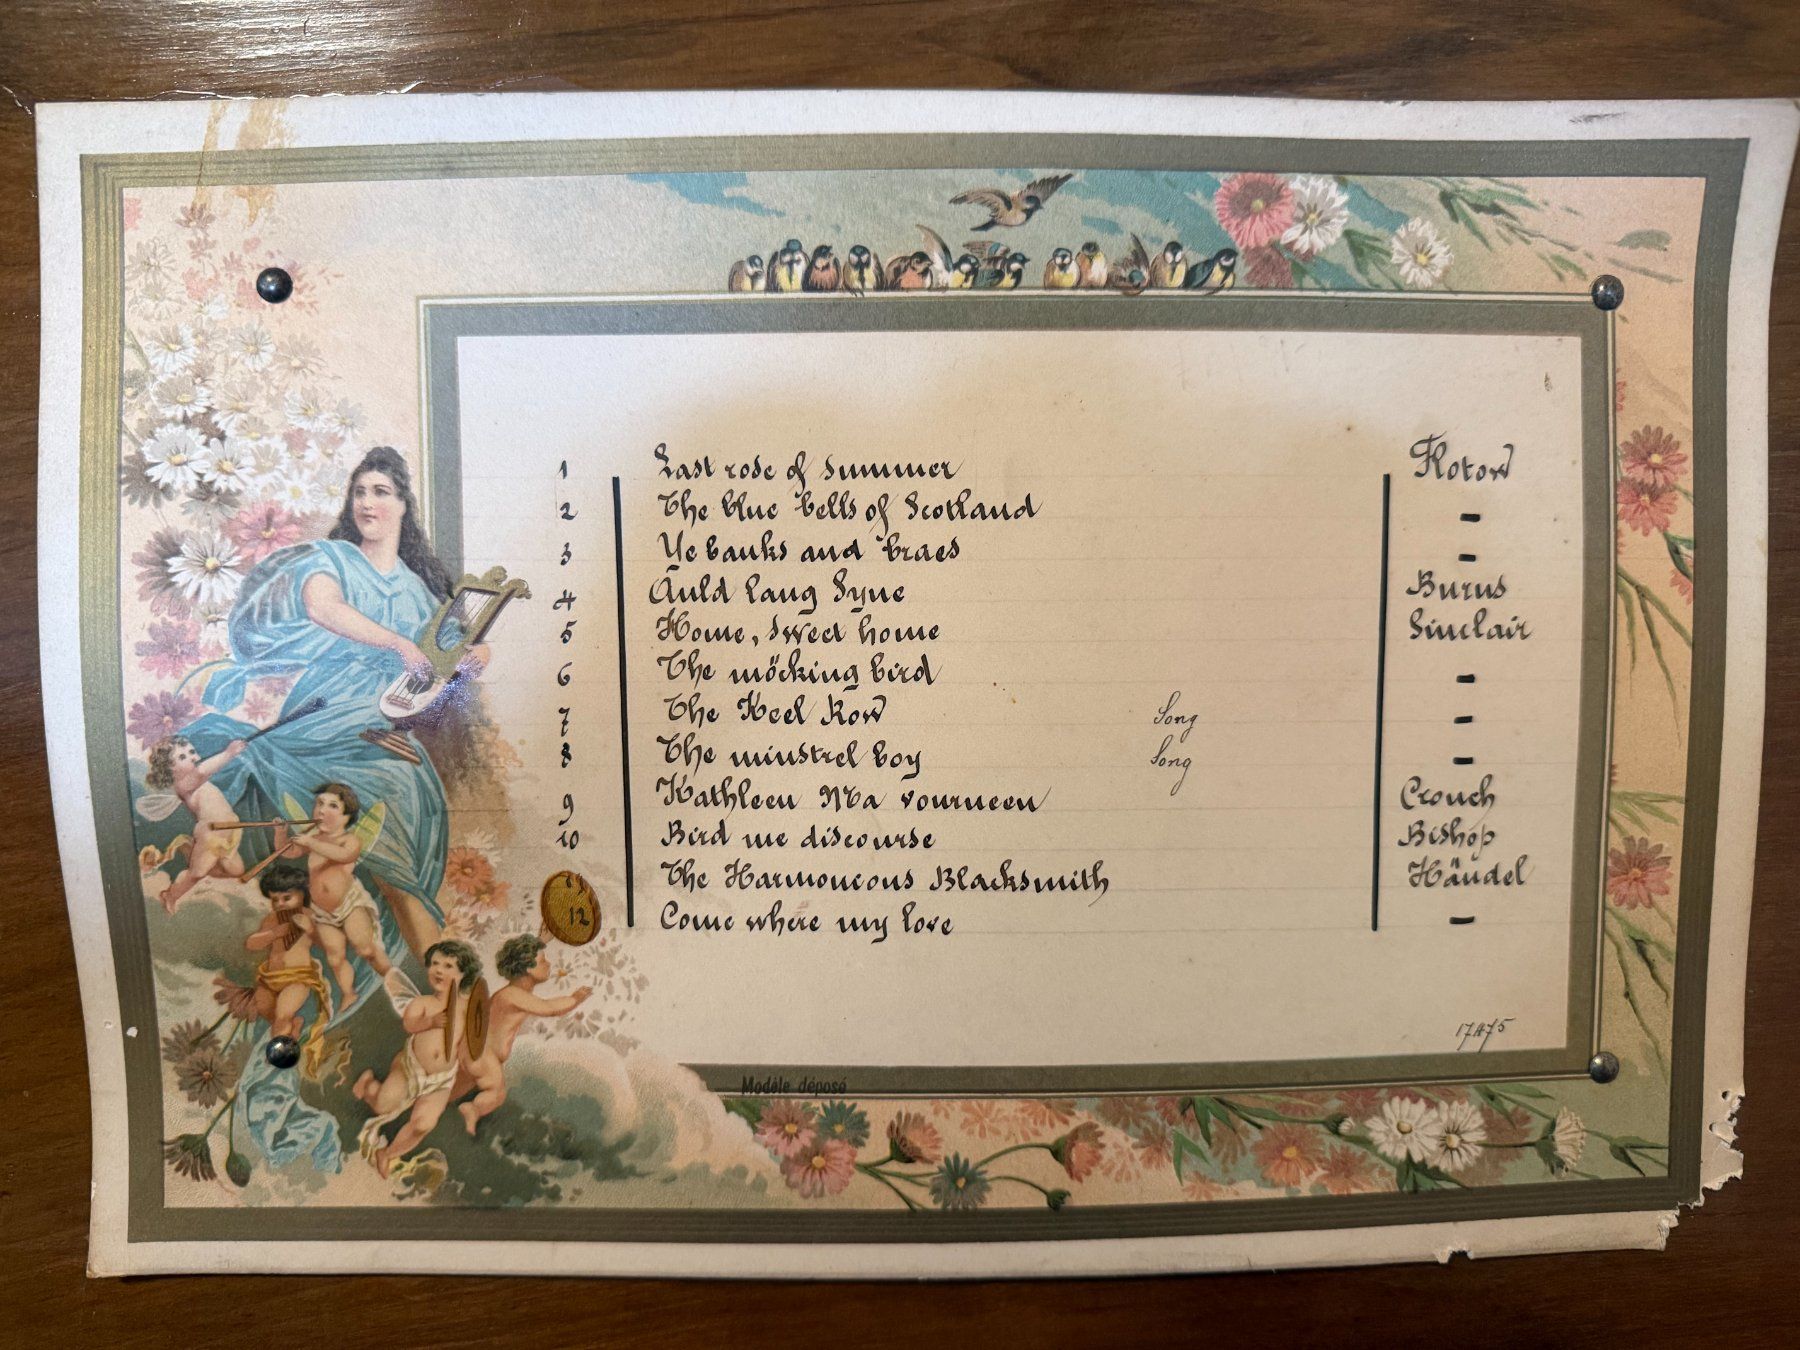 1 Last rose of summer Flotow
2 The blue bells of Scotland -
3 Ye banks and braes -
4 Auld lang Syne Burns
5 Home, sweet home Sinclair
6 The möcking bird -
7 The Keel Row Song -
8 The minstrel boy Song -
9 Kathleen Ma vourneen Crouch
10 Bird me discourse Bishop
11 The Harmoneous Blacksmith Händel
12 Come where my love -
17475
Modèle déposé